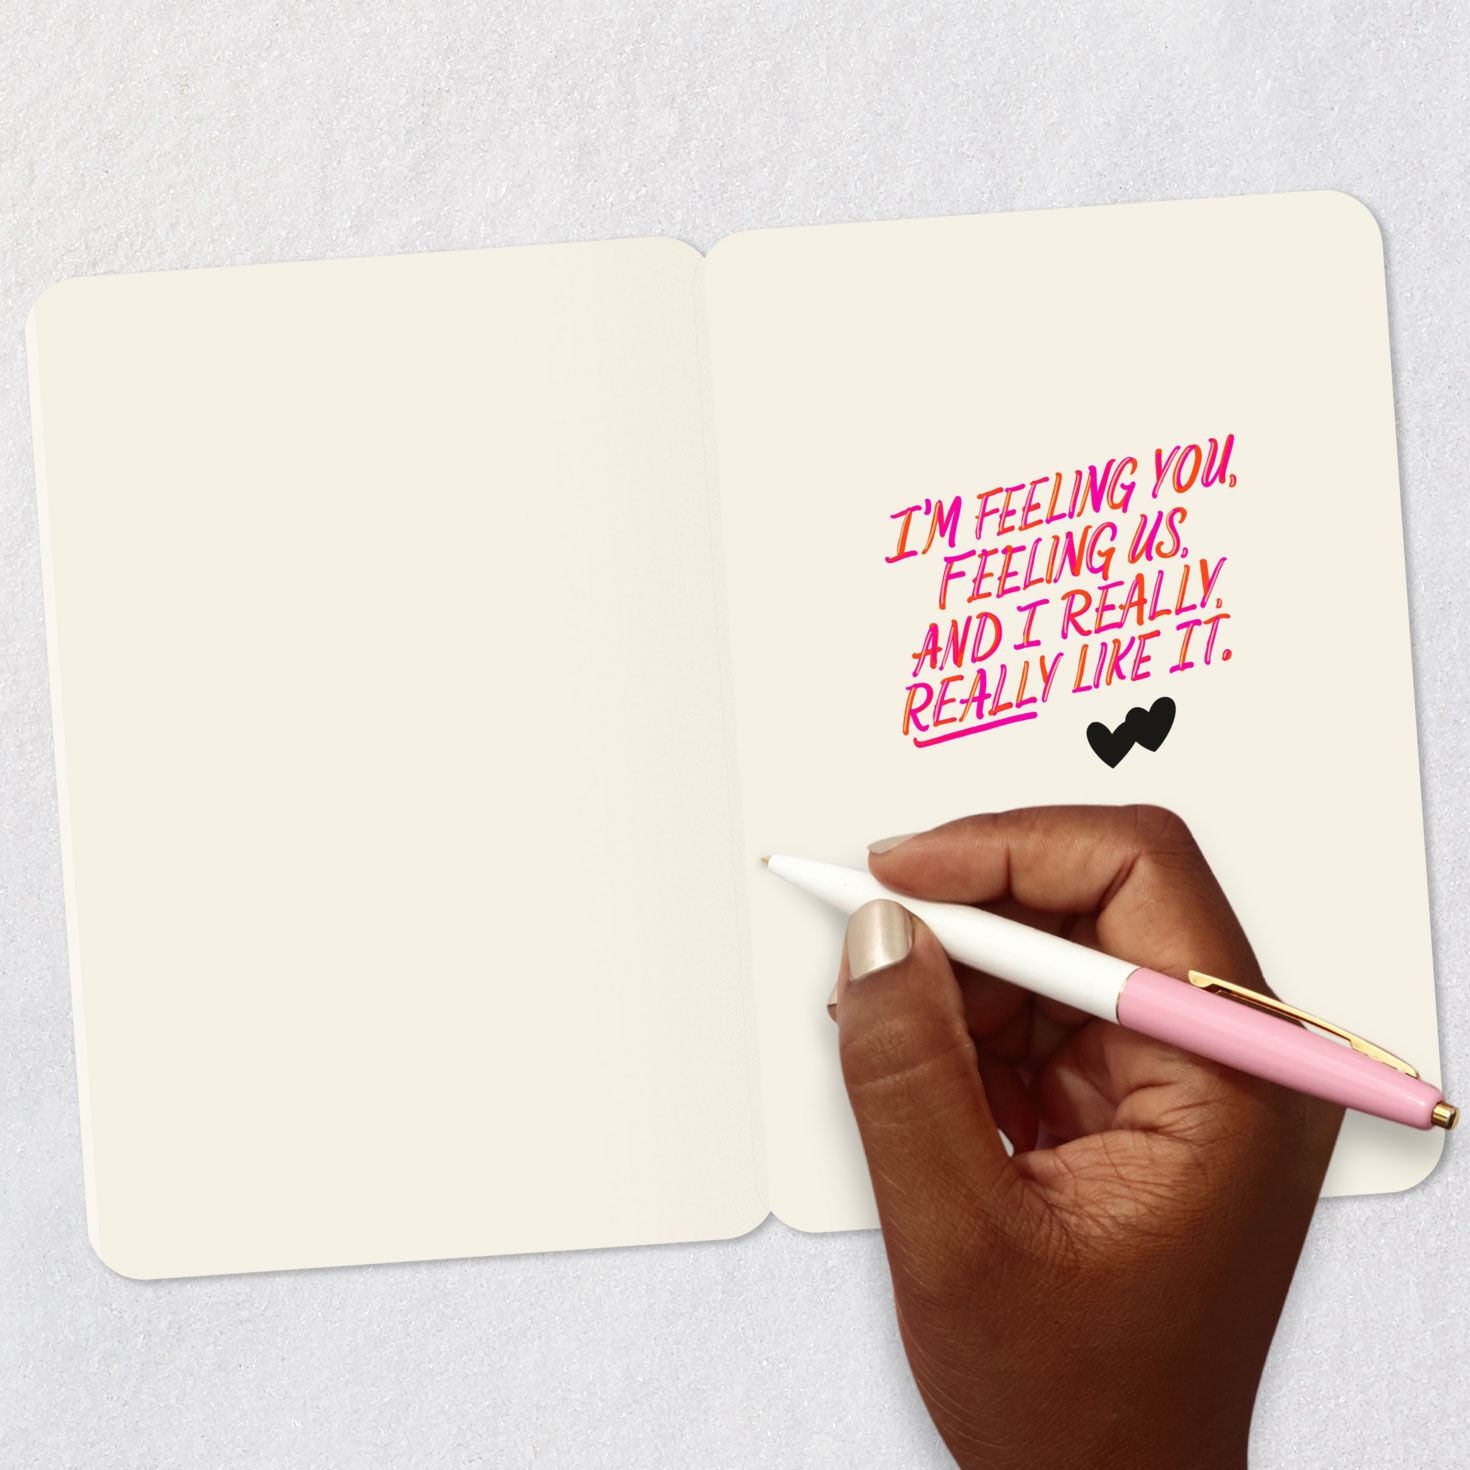 I'M FEELING YOU,
FEELING US,
AND I REALLY,
REALLY LIKE IT.